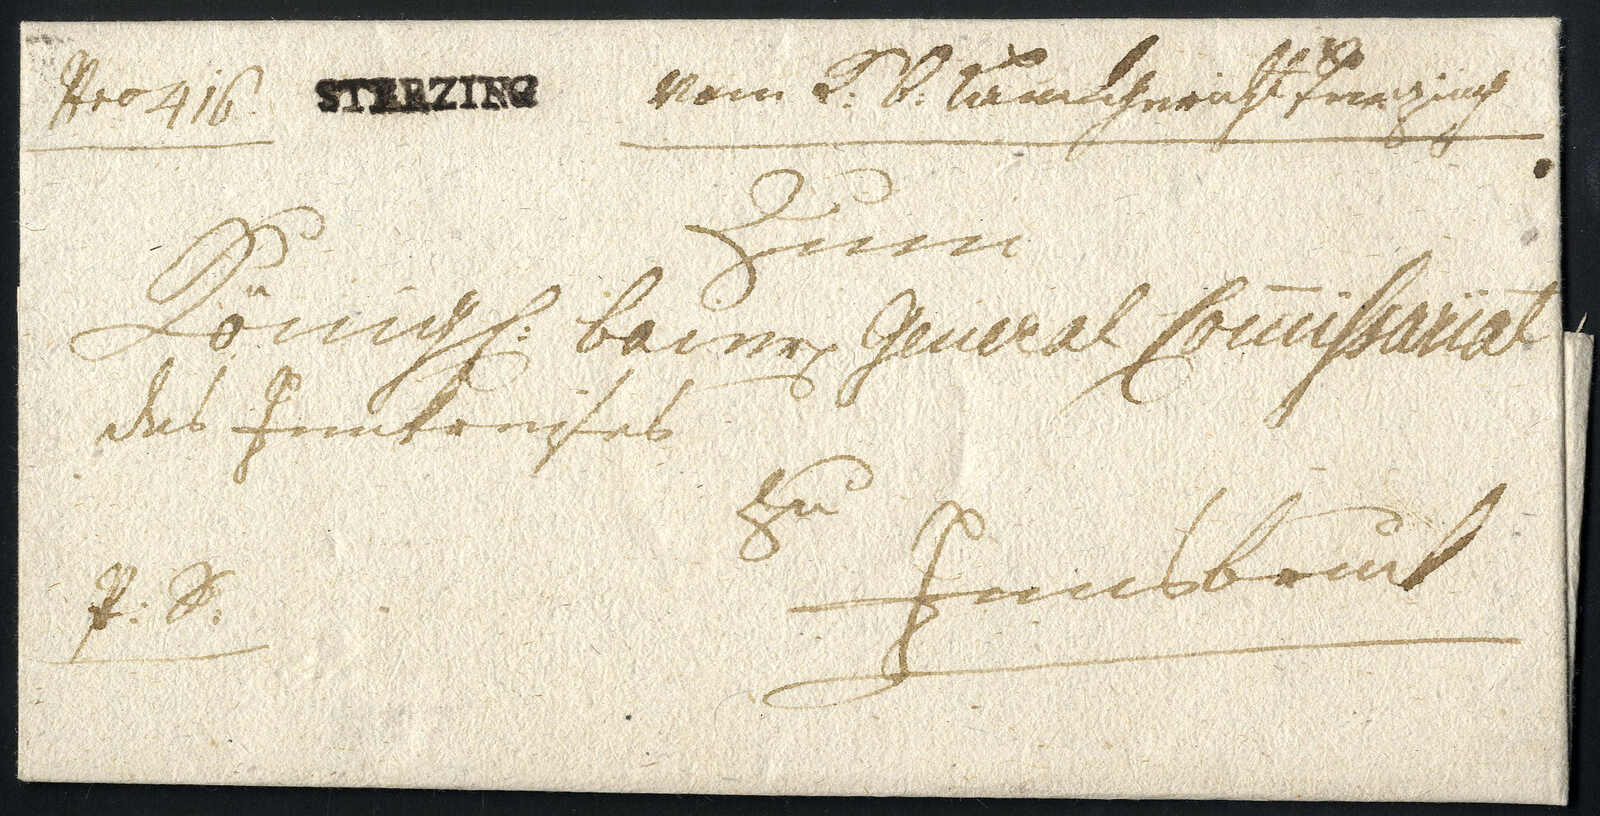 Nro 416. STERZING vom K: B: Landgericht Sterzing
Zum
Königl: baier General Commissariat
des Innkreises
zu
Innsbruck
P: S: